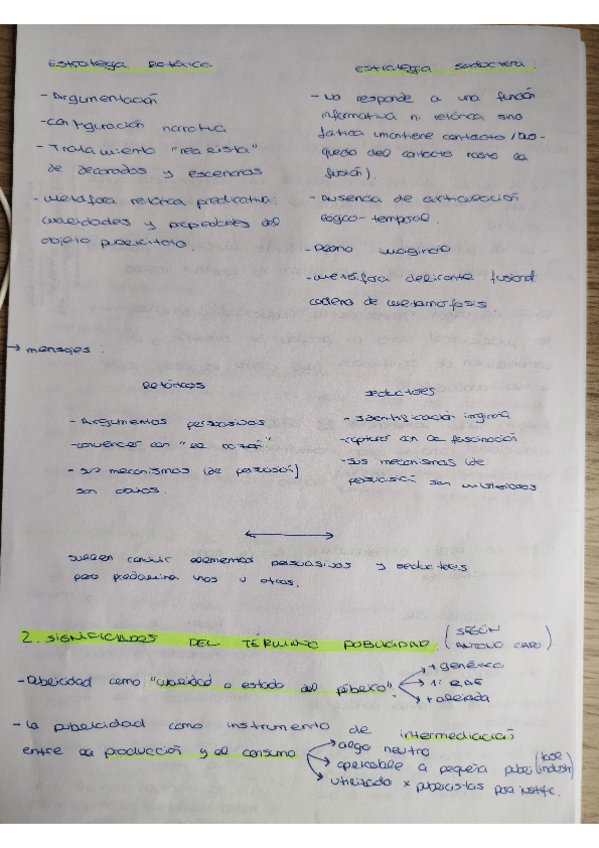 Estrategia Retórica
- Argumentación
- configuración narrativa
- Tratamiento "realista"
de decorados y escenarios
- metáfora retórica predicativa:
cualidades y propiedades del
objeto publicitario.
estrategia seductora.
- No responde a una función
informativa ni retórica sino
fática (mantiene contacto / bús-
queda del contacto roste la
función).
- Ausencia de articulación
lógico-temporal.
- Plano imaginario
- metáfora delirante fusional
cadena de metamorfosis
→ mensajes:
Retóricos
- Argumentos persuasivos
- convencer con "la razón"
- sus mecanismos (de persuasión)
son obvios.
seductores
- Identificación imaginaria
- capturar con la fascinación
- sus mecanismos (de
persuasión son misteriosos.
suelen convivir elementos persuasivos y seductores
pero predomina unos u otros.
2. SIGNIFICADOS DEL TÉRMINO PUBLICIDAD. (SEGÚN
ANTONIO CARO)
- Publicidad como "cualidad o estado del público".
+ genérico
1ª RAE
+ alejada
- La publicidad como instrumento de intermediación
entre la producción y el consumo
algo neutro
aplicable a pequeña publi (base
industr.)
utilizado x publicistas para justific.